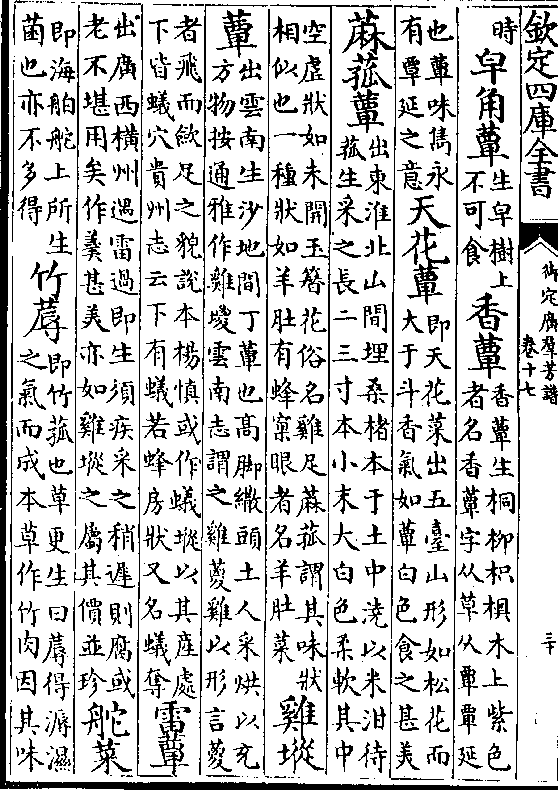 欽定四庫全書
御定廣羣芳譜
卷十七
三十
時
皁角蕈
生皁樹上
不可食
香蕈
香蕈生桐柳枳椇木上紫色
者名香蕈字从草从覃覃延
也蕈味雋永
有覃延之意
天花蕈
即天花菜出五臺山形如松花而
大于斗香氣如蕈白色食之甚美
蔴菰蕈
出東淮北山間埋桑楮本于土中澆以米泔待
菰生采之長二三寸本小末大白色柔軟其中
空虛狀如未開玉簪花俗名雞足蔴菰謂其味狀
相似也一種狀如羊肚有蜂窠眼者名羊肚菜
雞㙡
蕈
出雲南生沙地間丁蕈也高脚繖頭土人采烘以充
方物按通雅作雞堫雲南志謂之雞葼雞以形言葼
者飛而斂足之貌說本楊慎或作蟻㙡以其產處
下皆蟻穴貴州志云下有蟻若蜂房狀又名蟻奪
雷蕈
出廣西橫州遇雷過即生須疾采之稍遲則腐或
老不堪用矣作羹甚美亦如雞㙡之屬其價並珍
舵菜
即海舶舵上所生
菌也亦不多得
竹蓐
即竹菰也草更生曰蓐得溽濕
之氣而成本草作竹肉因其味